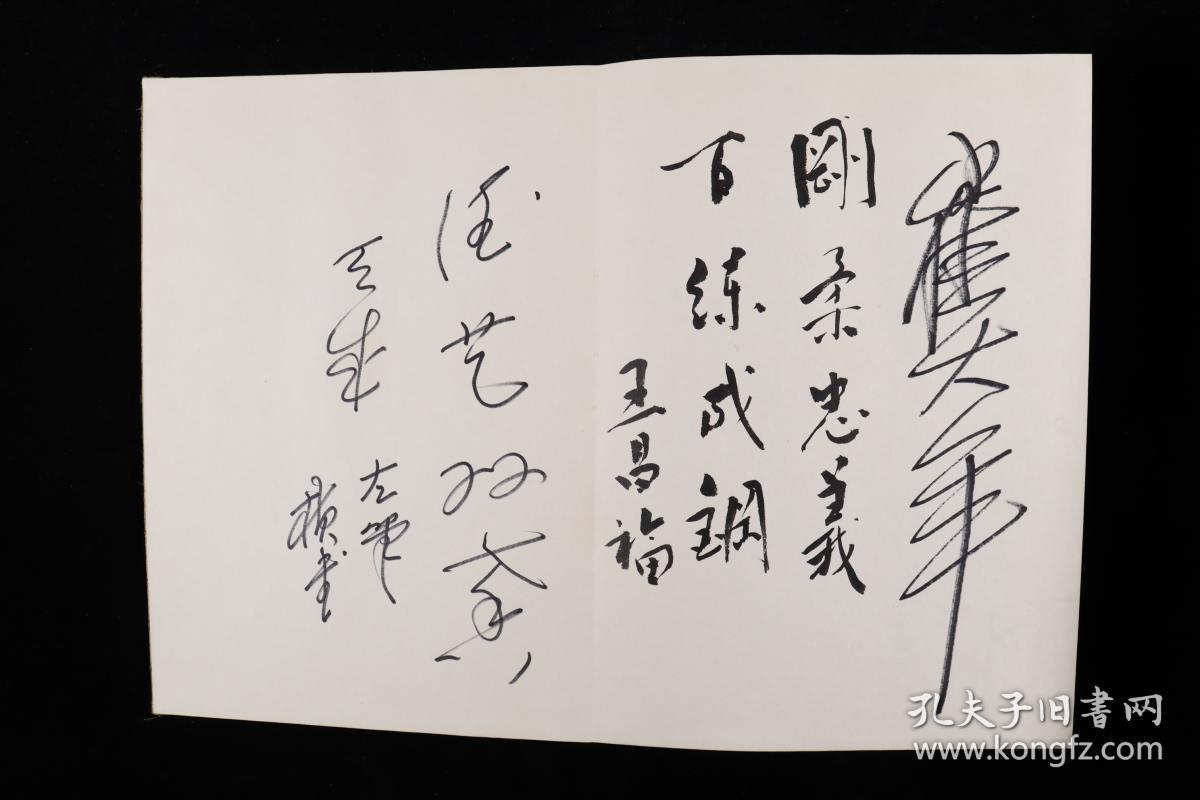 崔大年
剛柔忠義
百练成鋼
王昌福
德艺双馨
天来
左笔
横书
孔夫子旧書网
www.kongfz.com